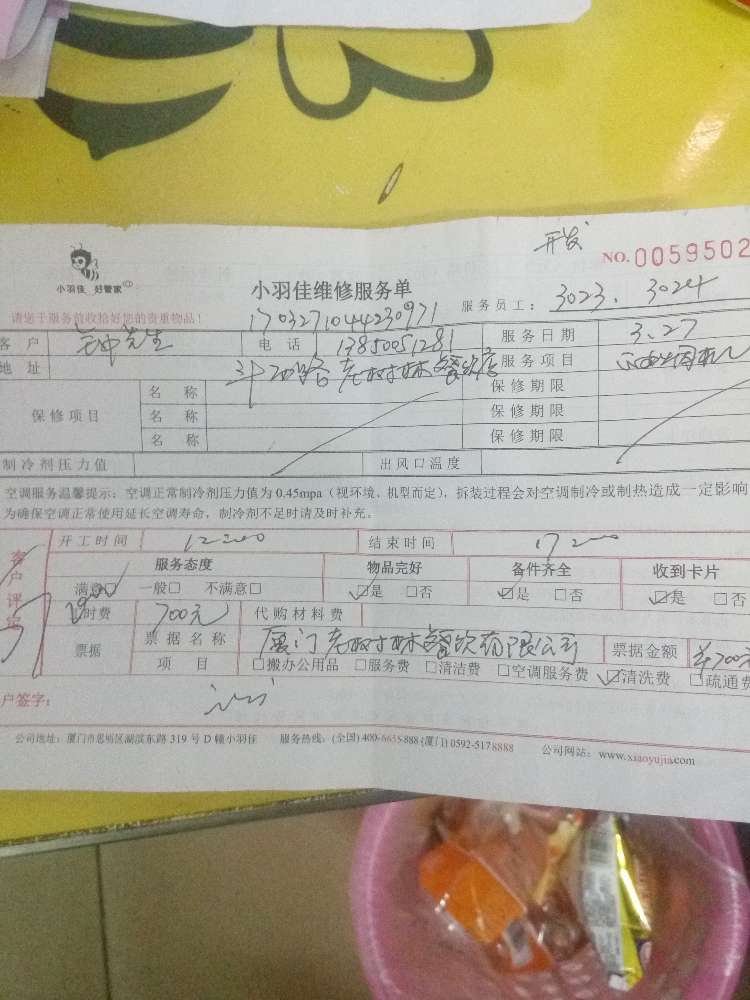 开发
NO. 0059502
小羽佳 好管家
小羽佳维修服务单
服务员工: 3023、3024
请您于服务前收拾好您的贵重物品!
1703271044230971
客 户 钟先生 电 话 13850051281 服务日期 3.27
地 址 斗西路老树林餐饮店 服务项目
保修项目
名 称 保修期限
名 称 保修期限
名 称 保修期限
制冷剂压力值 出风口温度
空调服务温馨提示: 空调正常制冷剂压力值为 0.45mpa (视环境、机型而定), 拆装过程会对空调制冷或制热造成一定影响
为确保空调正常使用延长空调寿命, 制冷剂不足时请及时补充。
客户评定
开工时间 12:00 结束时间 17:00
服务态度 物品完好 备件齐全 收到卡片
满意☑ 一般□ 不满意□ ☑是 □否 ☑是 □否 ☑是 □否
时费 700元 代购材料费
票据 票据名称 厦门老树林餐饮有限公司 票据金额 ¥700元
项 目 □搬办公用品 □服务费 □清洁费 □空调服务费 ☑清洗费 □疏通费
户签字:
公司地址: 厦门市思明区湖滨东路 319 号 D 幢小羽佳 服务热线: (全国) 400-6635-888 (厦门) 0592-5178888 公司网站: www.xiaoyujia.com